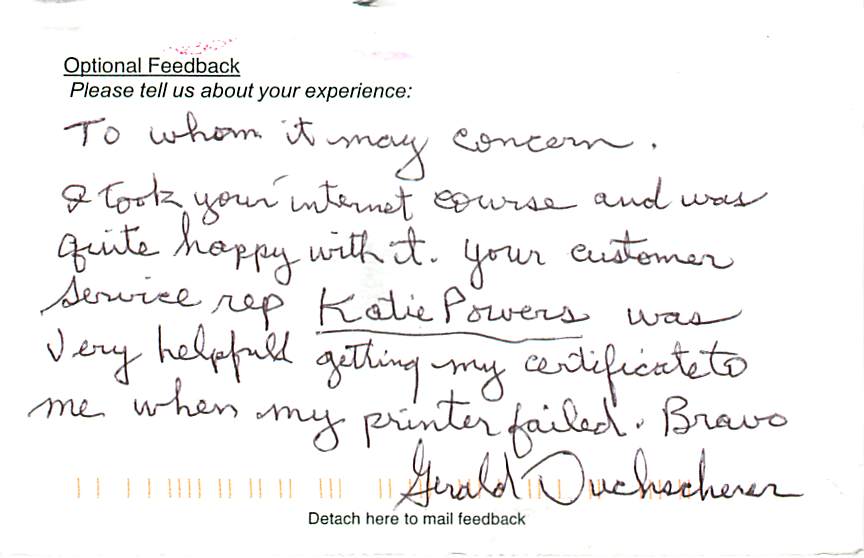 Optional Feedback
Please tell us about your experience:
To whom it may concern.
I took your internet course and was
quite happy with it. Your customer
service rep Katie Powers was
very helpfull getting my certificate to
me when my printer failed. Bravo
Gerald Duchscherer
Detach here to mail feedback